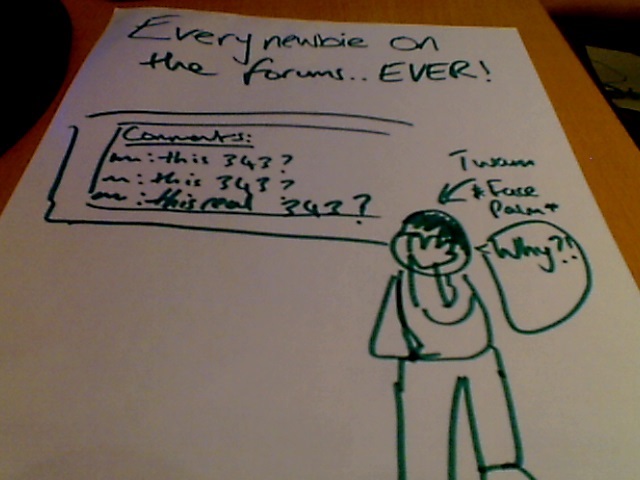 Every newbie on
the forums.. EVER!
Comments:
: this 343?
: this 343?
: this real 343?
*Face
Palm*
Why?!